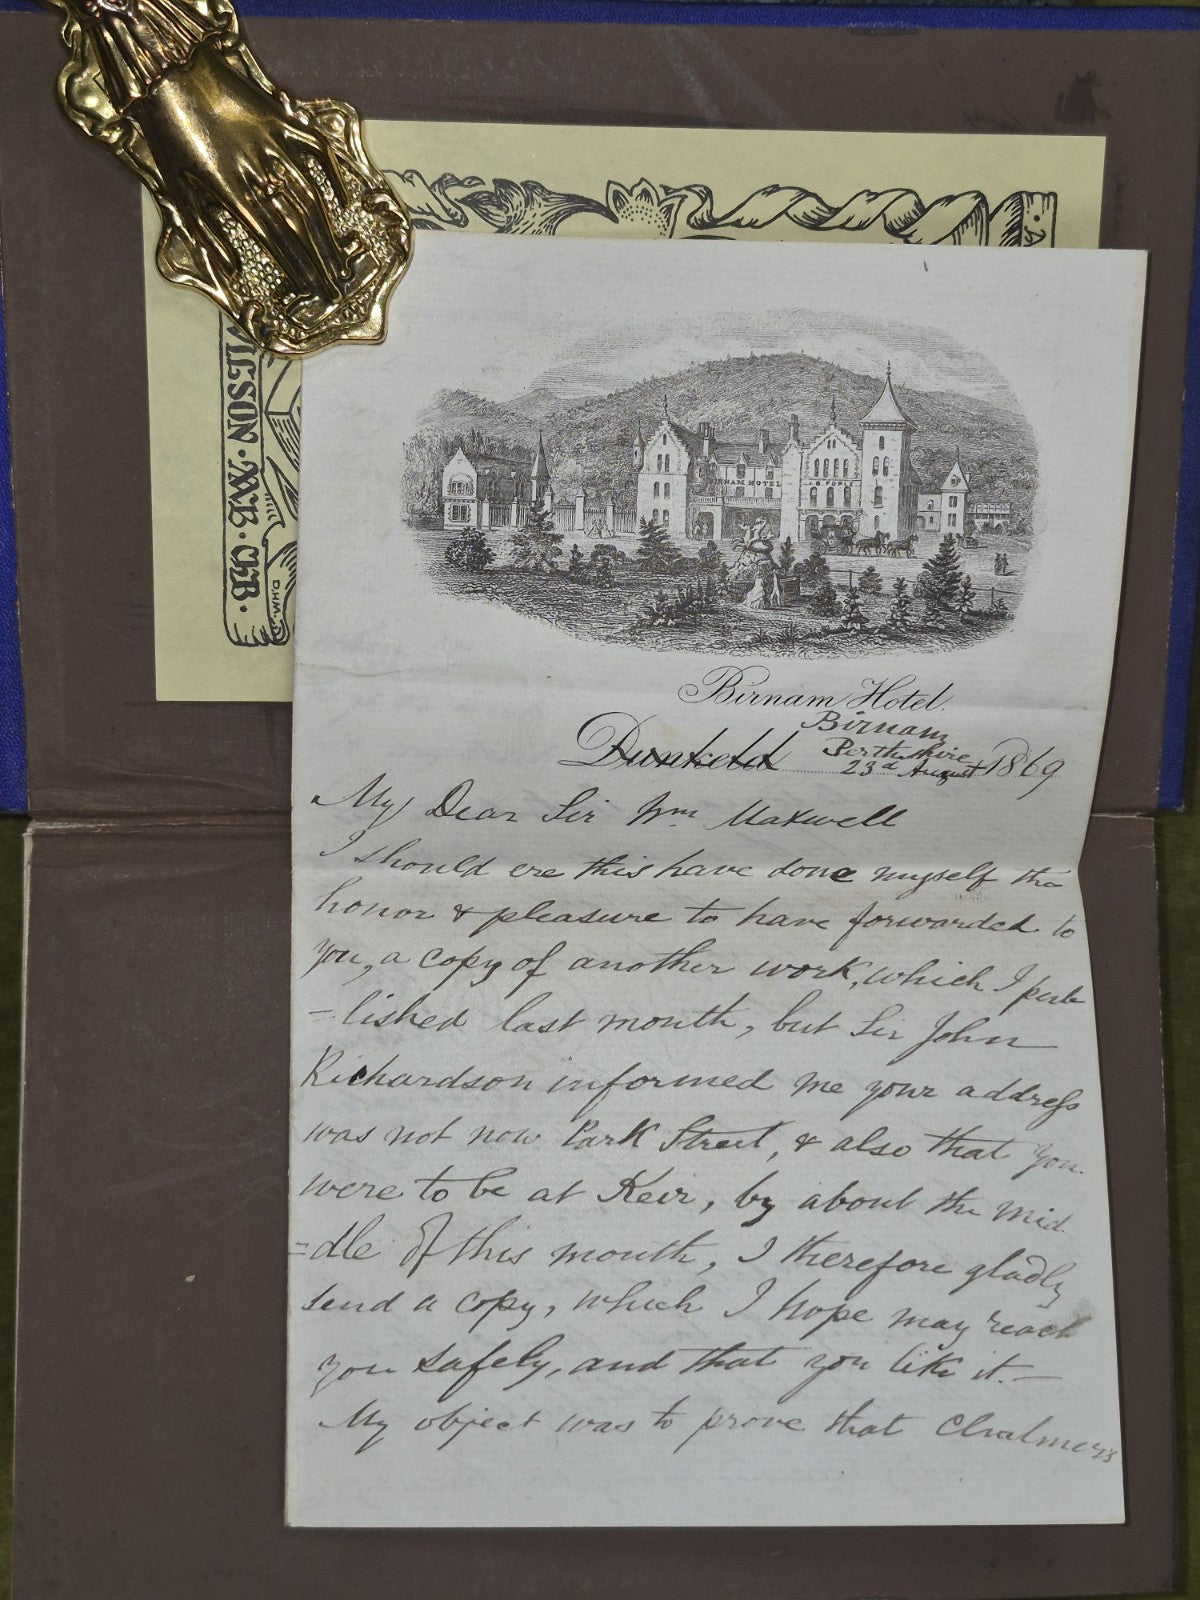 WILSON · XXE · CHE ·
D.H.M.
BIRNAM HOTEL
Birnam Hotel.
Birnam
Dunkeld Perthshire
23d August 1869
My Dear Sir Wm. Maxwell
I should ere this have done myself the
honor & pleasure to have forwarded to
you, a copy of another work, which I pub
=lished last month, but Sir John
Richardson informed me your address
was not now Park Street, & also that you
were to be at Keir, by about the mid.
=dle of this month, I therefore gladly
send a copy, which I hope may reach
you safely, and that you like it.—
My object was to prove that Chalmers